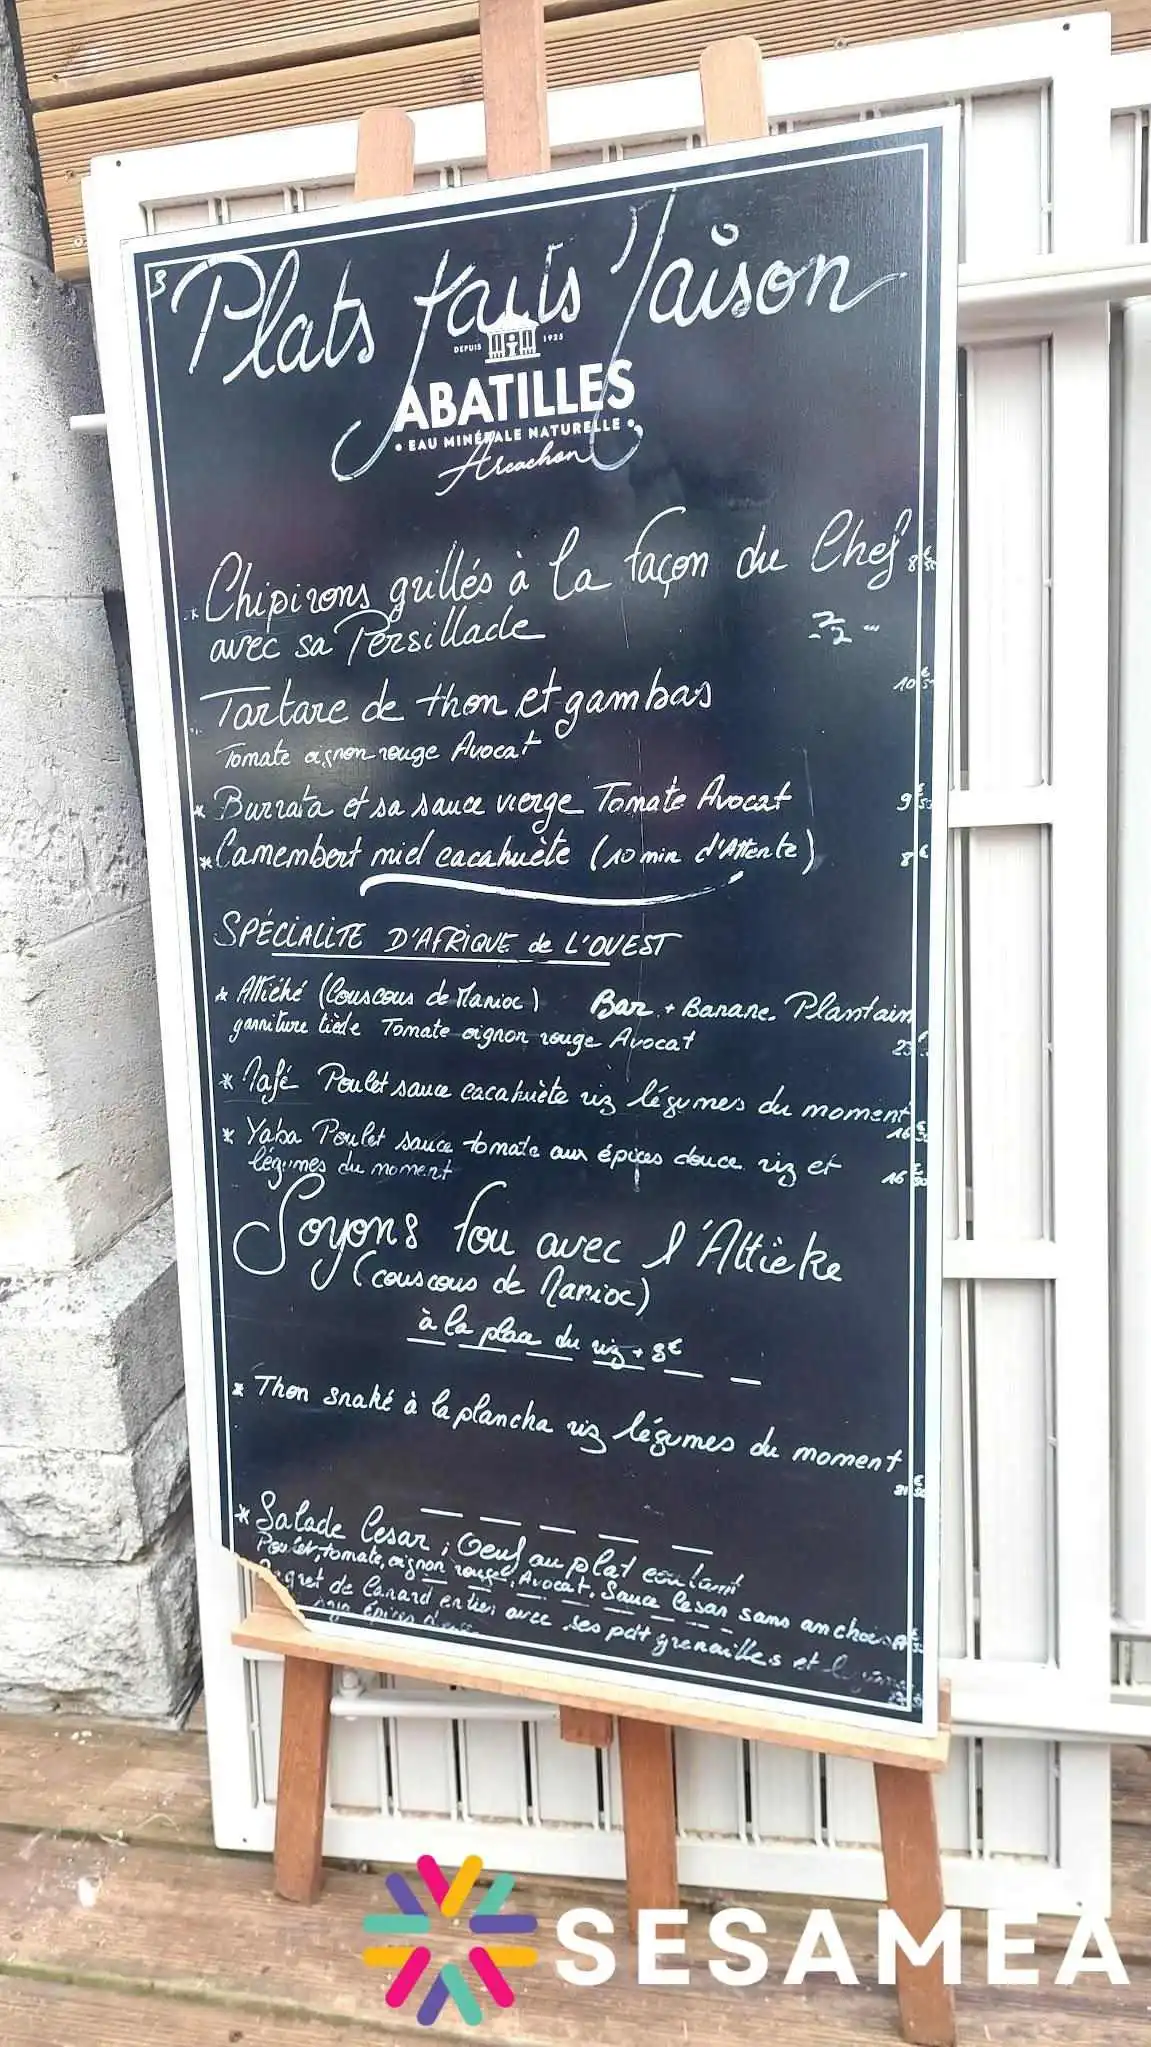 Plats faits Maison
DEPUIS 1925
ABATILLES
• EAU MINÉRALE NATURELLE •
Arcachon
* Chipirons grillés à la façon du Chef 8€50
avec sa Persillade
Tartare de thon et gambas 10€50
Tomate oignon rouge Avocat
* Burrata et sa sauce vierge Tomate Avocat 9€50
* Camembert miel cacahuète (10 min d'Attente) 8€
SPÉCIALITE D'AFRIQUE de L'OUEST
* Attiéké (Couscous de Manioc) Bar + Banane Plantain
garniture tiède Tomate oignon rouge Avocat
* Mafé Poulet sauce cacahuète riz légumes du moment
16€50
* Yaba Poulet sauce tomate aux épices douce riz et
légumes du moment 16€50
Soyons fou avec l'Attiéke
(couscous de Manioc)
à la place du riz + 3€
* Thon snaké à la plancha riz légumes du moment
21€50
* Salade Cesar, Oeuf au plat coulant
Poulet, tomate, oignon rouge, Avocat. Sauce Cesar sans anchois
de Canard entier avec ses petit grenailles et
épices
SESAMEA